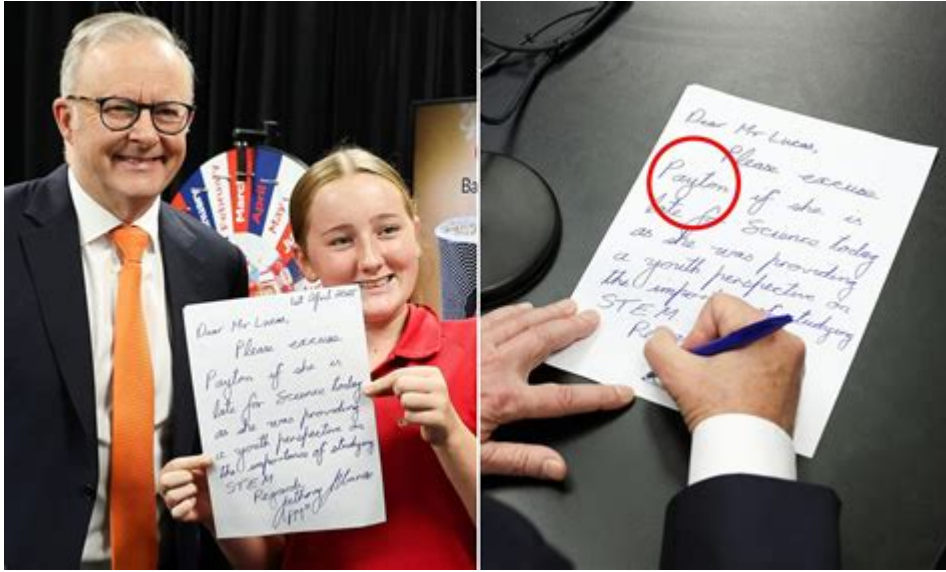 January
March
April
May
Ba
1st April 2025
Dear Mr Lucas,
Please excuse
Payton if she is
late for Science today
as she was providing
a youth perspective on
the importance of studying
STEM
Regards
Anthony Albanese
PM
Dear Mr Lucas,
Please excuse
Payton if she is
late for Science today
as she was providing
a youth perspective on
the of studying
STEM